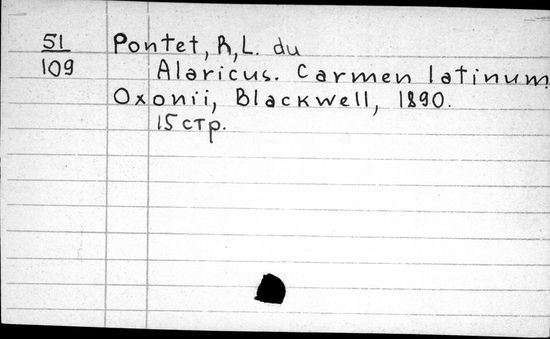 51
109
Pontet, R, L. du
Alaricus. Carmen latinum.
Oxonii, Blackwell, 1890.
15 стр.